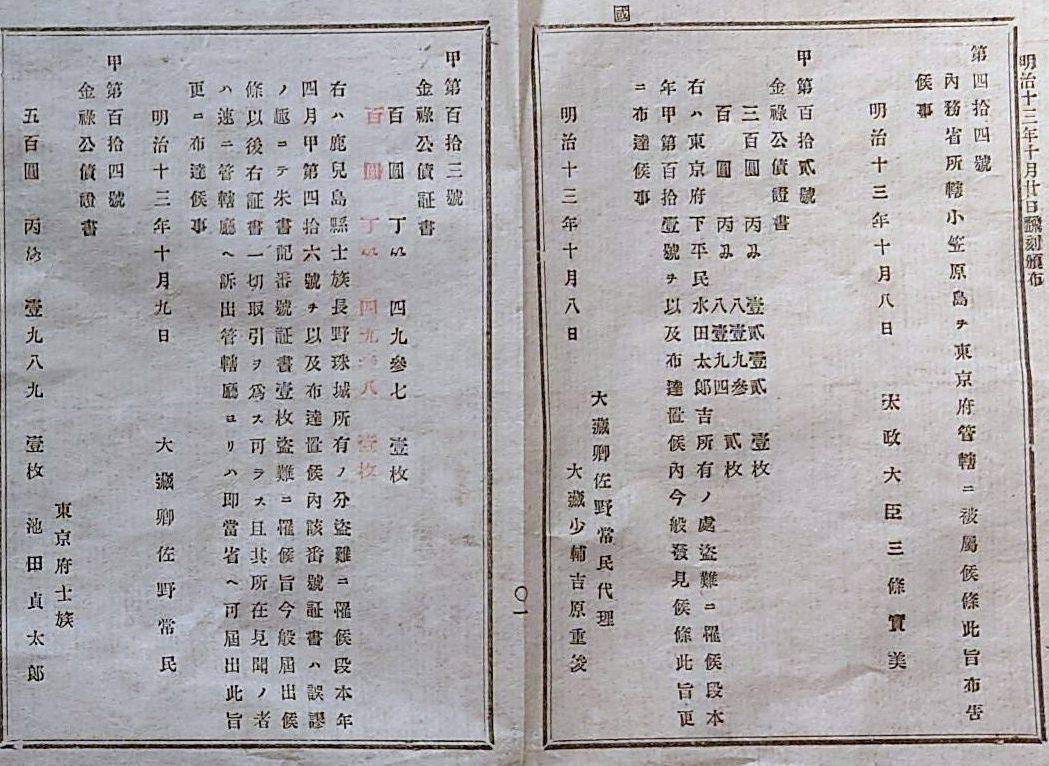 國
明治十三年十月廿日飜刻頒布
第四拾四號
內務省所轄小笠原島ヲ東京府管轄ニ被屬候條此旨布告
候事
明治十三年十月八日
太政大臣三條實美
甲第百拾貳號
金祿公債證書
三百圓 丙み 壹貳壹貳 壹枚
百圓 丙み 八壹九參 八壹九四 貳枚
右ハ東京府下平民水田太郎吉所有ノ處盜難ニ罹候段本
年甲第百拾壹號ヲ以及布達置候內今般發見候條此旨更
ニ布達候事
明治十三年十月八日
大藏卿佐野常民代理
大藏少輔吉原重俊
〇一
甲第百拾三號
金祿公債証書
百圓 丁い 四九參七 壹枚
百圓 丁い 四九 八 壹枚
右ハ鹿兒島縣士族長野珠城所有ノ分盜難ニ罹候段本年
四月甲第四拾六號ヲ以及布達置候內該番號証書ハ誤謬
ノ趣ニテ朱書記番號証書壹枚盜難ニ罹候旨今般屆出候
條以後右証書一切取引ヲ爲ス可ラス且其所在見聞ノ者
ハ速ニ管轄廳ヘ訴出管轄廳ヨリハ卽當省ヘ可屆出此旨
更ニ布達候事
明治十三年十月九日
大藏卿佐野常民
甲第百拾四號
金祿公債證書
東京府士族
五百圓 丙 壹九八九 壹枚 池田貞太郎